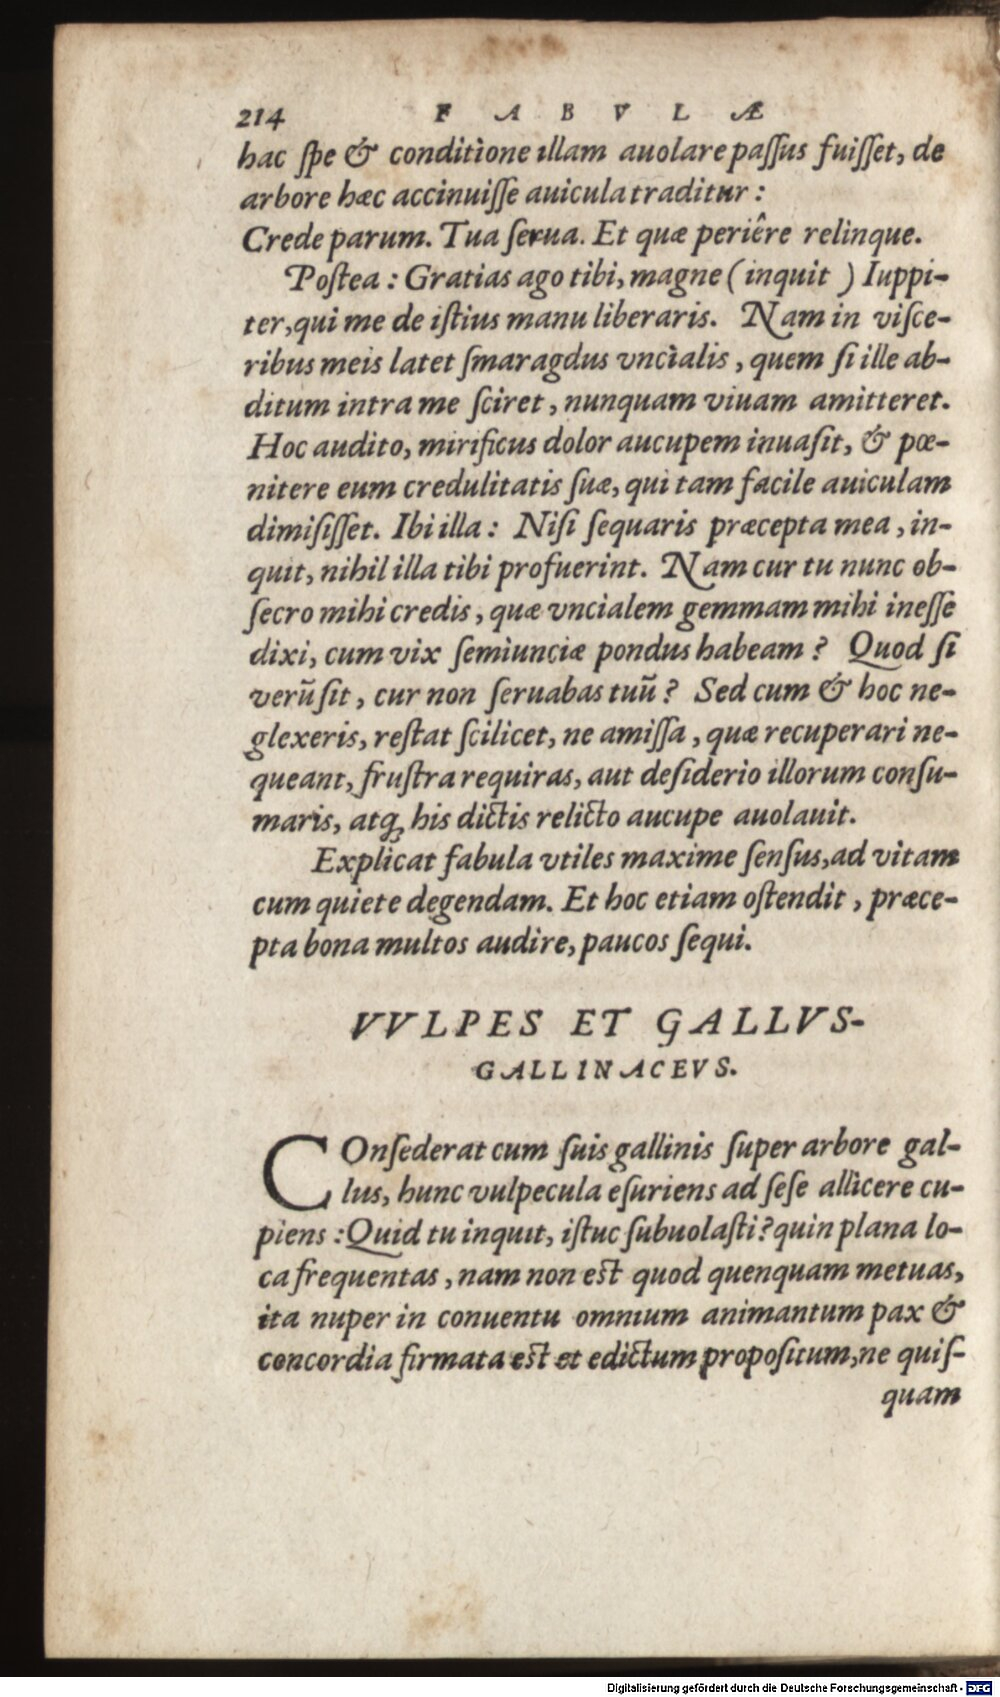 214 F A B V L Æ
hac ſpe & conditione illam auolare paſſus fuiſſet, de
arbore hæc accinuiſſe auicula traditur:
Crede parum. Tua ſerua. Et quæ periêre relinque.
Poſtea: Gratias ago tibi, magne (inquit) Iuppi-
ter, qui me de iſtius manu liberaris. Nam in viſce-
ribus meis latet ſmaragdus vncialis, quem ſi ille ab-
ditum intra me ſciret, nunquam viuam amitteret.
Hoc audito, mirificus dolor aucupem inuaſit, & pœ-
nitere eum credulitatis ſuæ, qui tam facile auiculam
dimiſiſſet. Ibi illa: Niſi ſequaris præcepta mea, in-
quit, nihil illa tibi profuerint. Nam cur tu nunc ob-
ſecro mihi credis, quæ vncialem gemmam mihi ineſſe
dixi, cum vix ſemiunciæ pondus habeam? Quod ſi
verũ ſit, cur non ſeruabas tuũ? Sed cum & hoc ne-
glexeris, reſtat ſcilicet, ne amiſſa, quæ recuperari ne-
queant, fruſtra requiras, aut deſiderio illorum conſu-
maris, atq; his dictis relicto aucupe auolauit.
Explicat fabula vtiles maxime ſenſus, ad vitam
cum quiete degendam. Et hoc etiam oſtendit, præce-
pta bona multos audire, paucos ſequi.
VVLPES ET GALLVS-
GALLINACEVS.
COnſederat cum ſuis gallinis ſuper arbore gal-
lus, hunc vulpecula eſuriens ad ſeſe allicere cu-
piens: Quid tu inquit, iſtuc ſubuolaſti? quin plana lo-
ca frequentas, nam non eſt quod quenquam metuas,
ita nuper in conuentu omnium animantum pax &
concordia firmata eſt et edictum propoſitum, ne quiſ-
quam
Digitalisierung gefördert durch die Deutsche Forschungsgemeinschaft - DFG